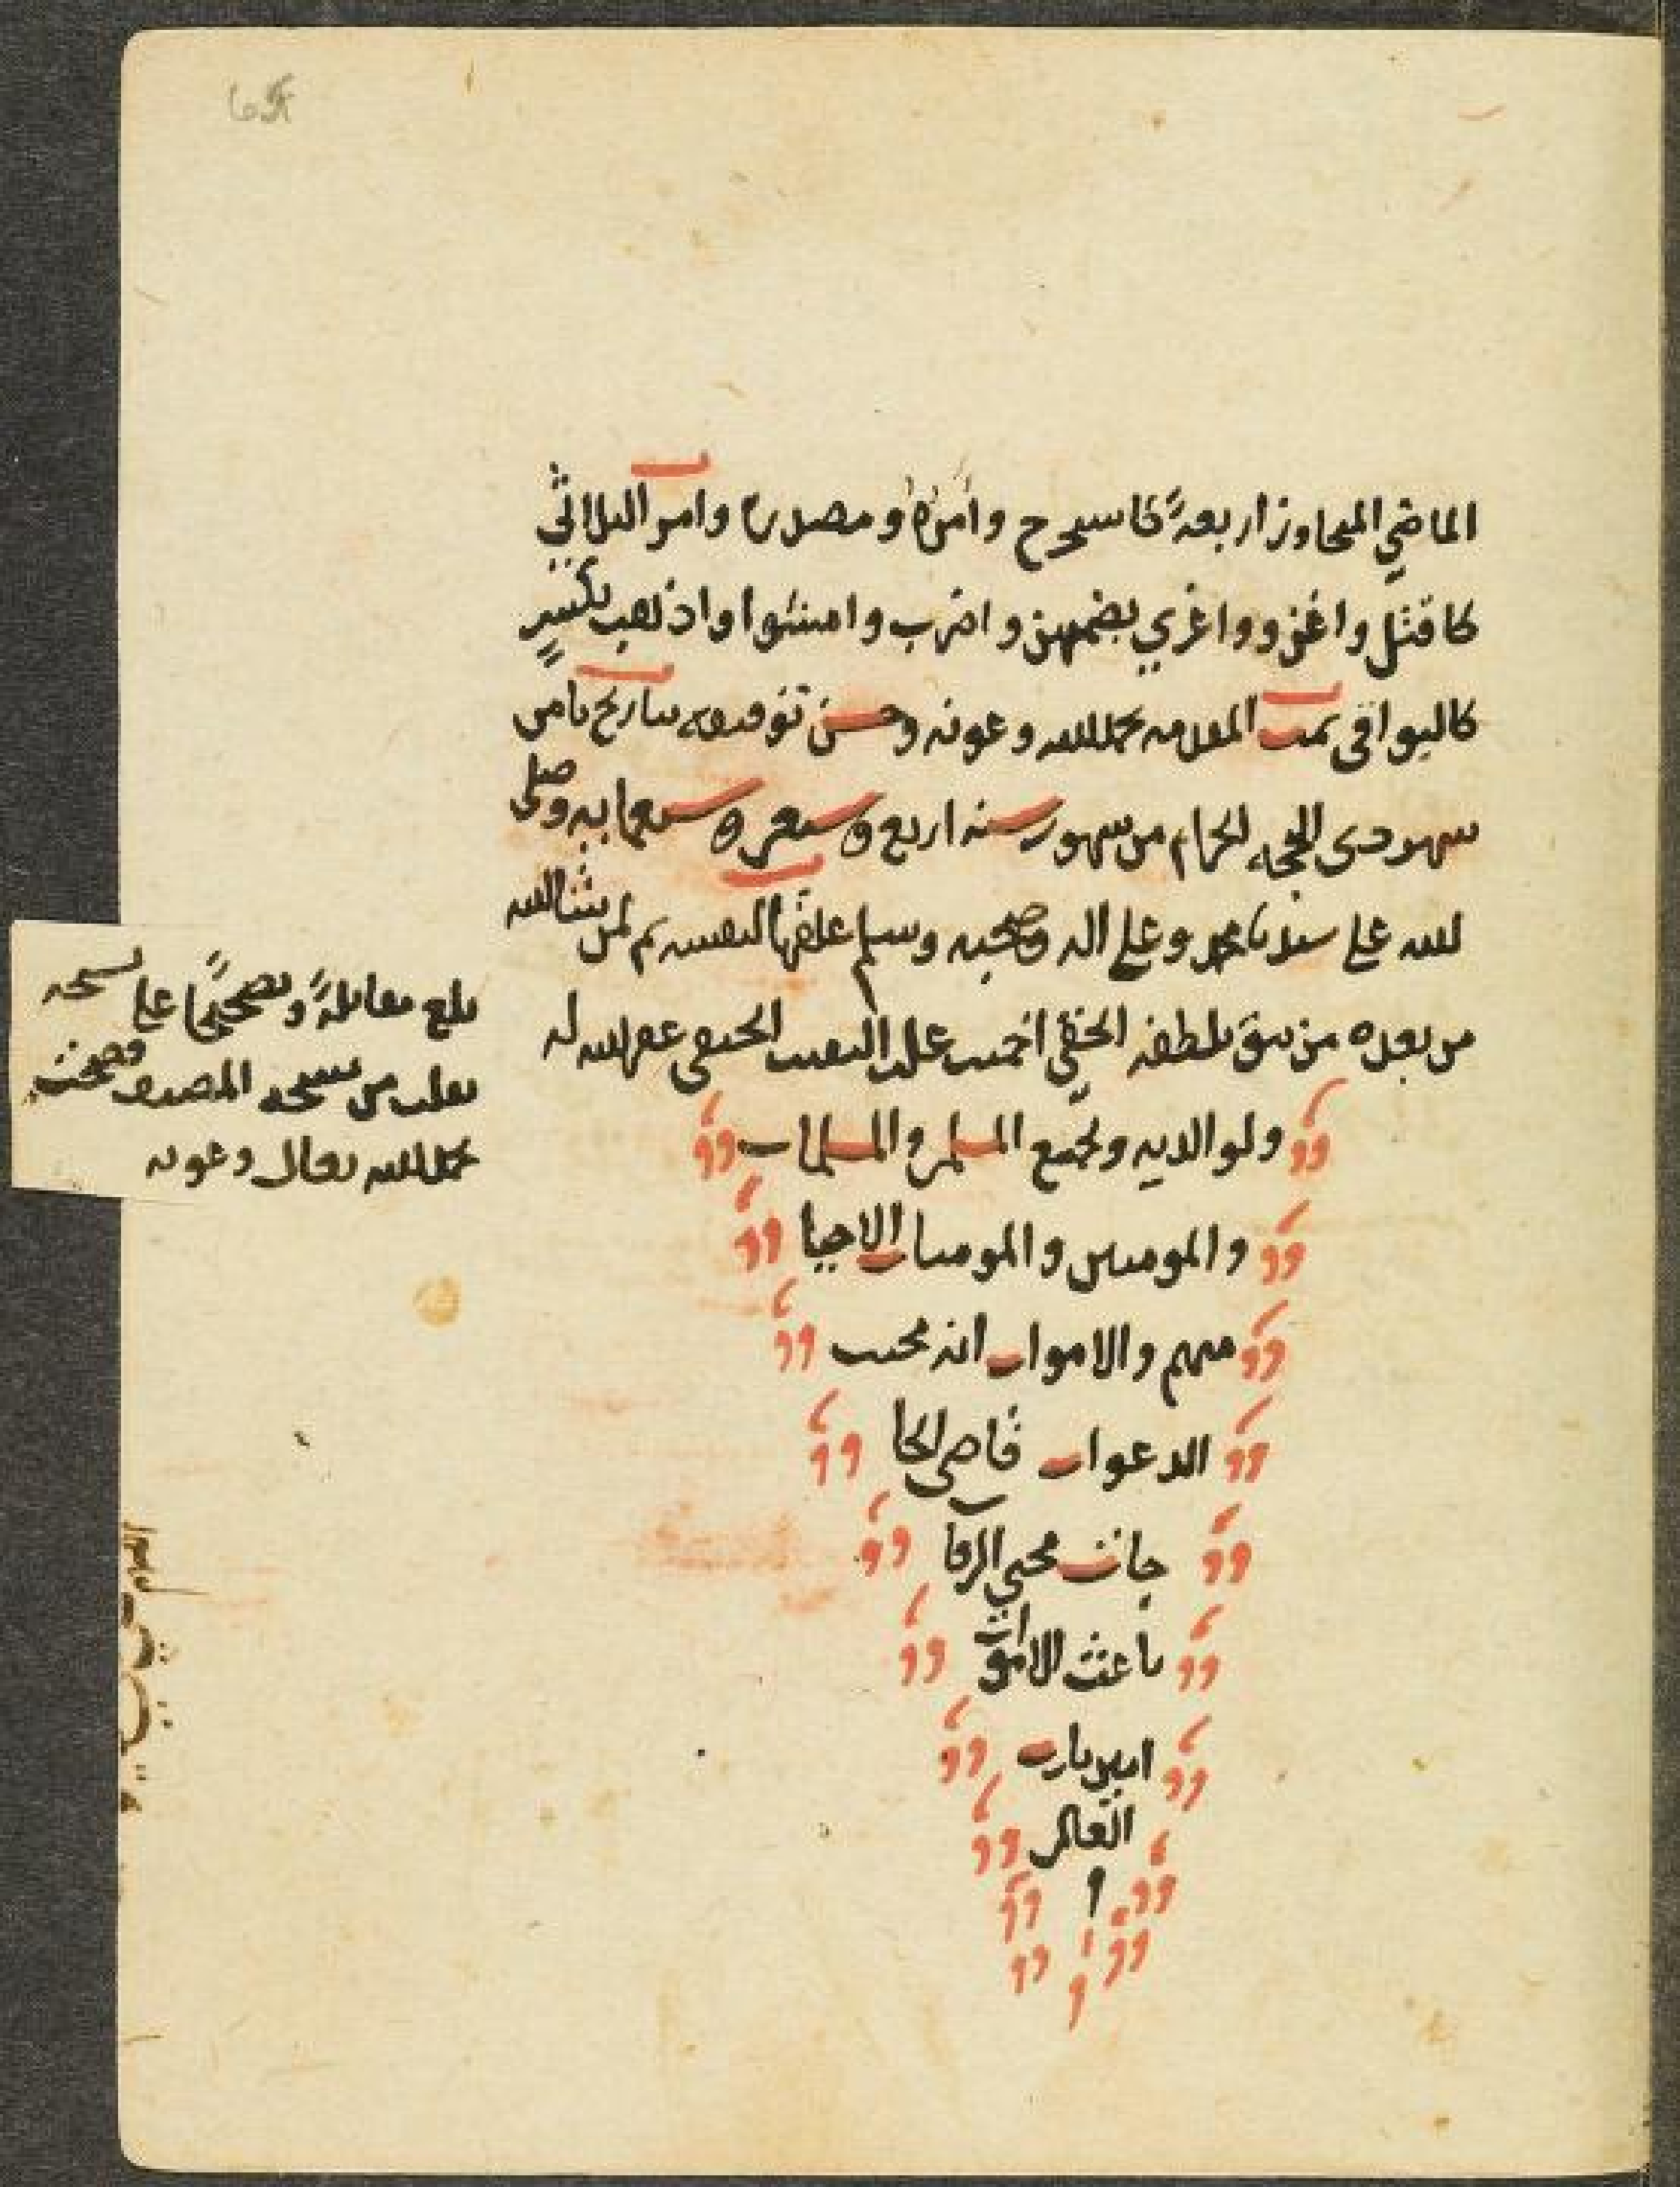 الماضي المجاوز اربعةً كاستخرج وامره ومصدره وامر الثلاثي
كاقتل واغز وواغزي بضمهن واضرب وامشوا واذهب بكسرٍ
كالبواقي تمت المقدمه بحمد الله وعونه وحسن توفيقه بتاريخ ثامن
شهر ذى الحجه الحرام من شهور سنه اربع وتسعين وسبعمايه وصلى
الله على سيدنا محمد وعلى اله وصحبه وسلم علقها لنفسه ثم لمن شا الله
من بعده من بلطفه الخفي احمد الحنفى عفى الله له
ولوالديه ولجميع المسلمين والمسلمات
والمومنين والمومنات الاحيا
منهم والاموات انه مجيب
الدعوات قاضي الحا
جات محيي الرفا
باعث الاموات
امين يارب
العالمين
بلغ مقابلةً وتصحيحًا على نسخه
نقلت من نسخه المصنف فصحت
بحمد الله تعالى وعونه